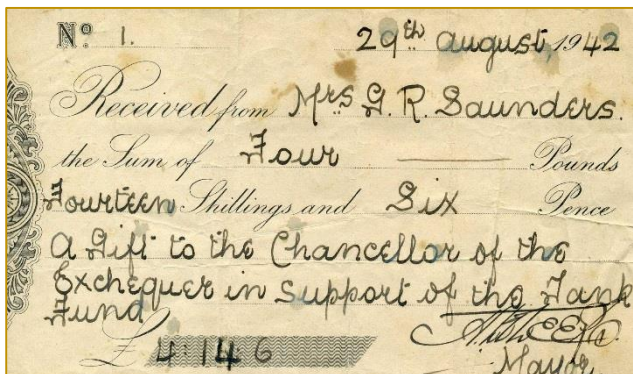 Nº 1. 29th August, 1942
Received from Mrs G. R. Saunders.
the Sum of Four Pounds
Fourteen Shillings and Six Pence
A Gift to the Chancellor of the
Exchequer in Support of the Tank
Fund
£ 4:14 6
Mayor